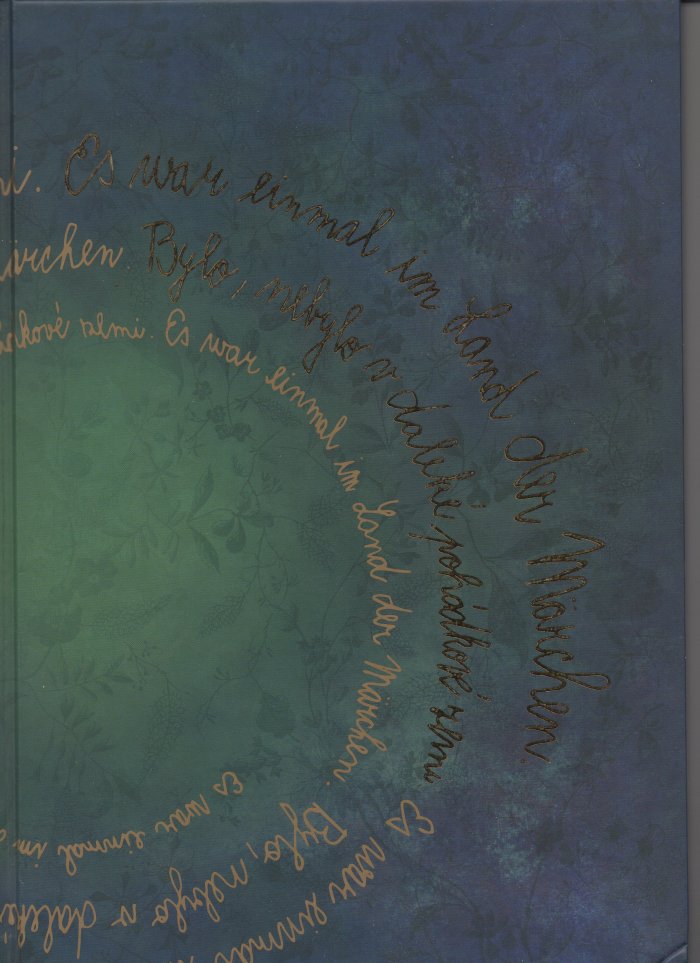 Es war einmal im Land der Märchen.
Märchen. Bylo, nebylo v daleké pohádkové zemi
zemi. Es war einmal im Land der Märchen. Bylo, nebylo v daleké
Es war einmal im
Es war einmal